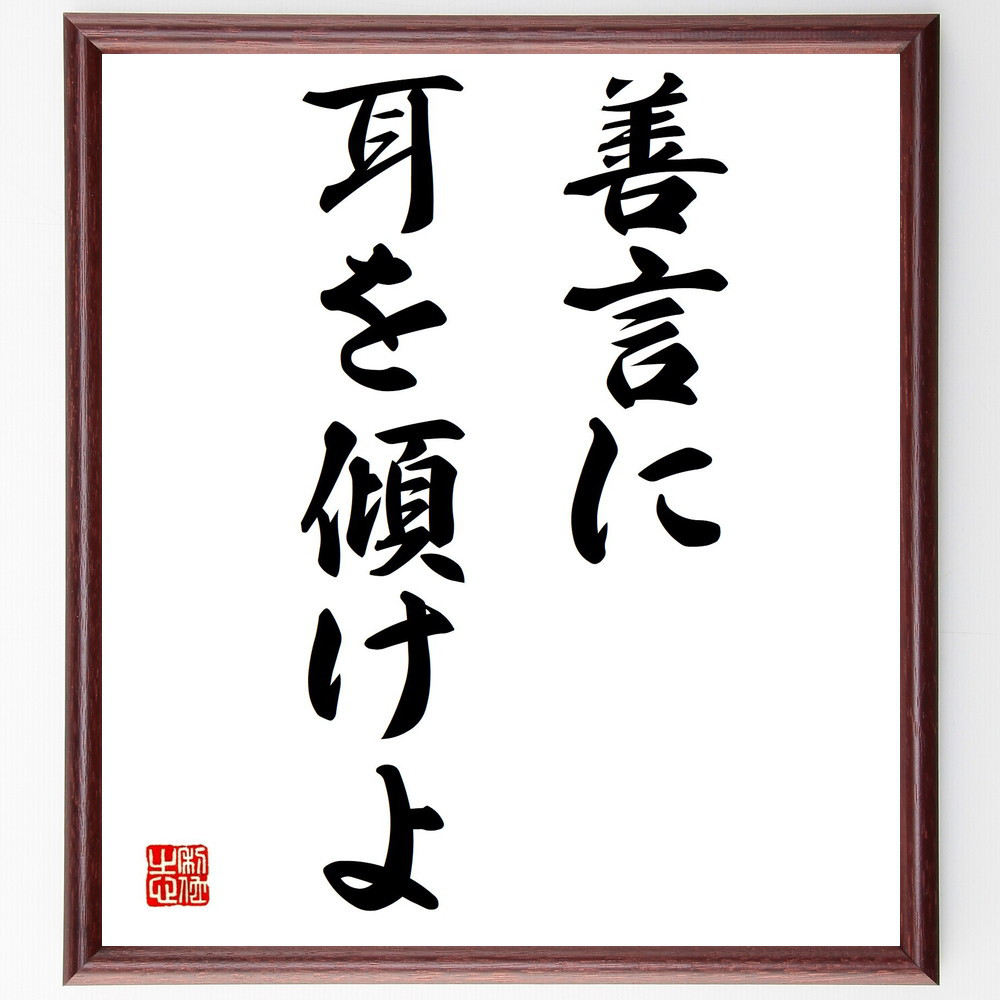 善言に
耳を傾けよ